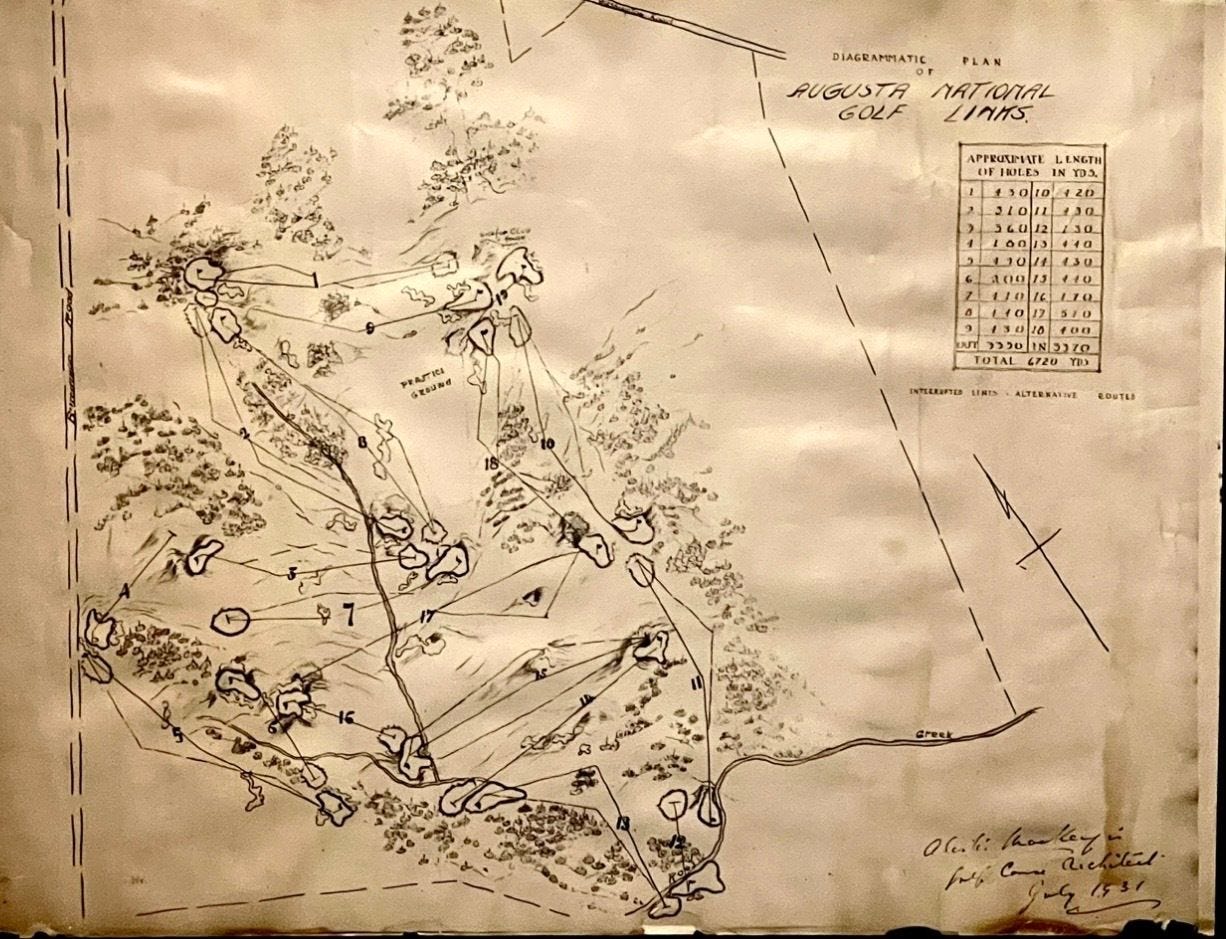 DIAGRAMMATIC PLAN
OF
AUGUSTA NATIONAL
GOLF LINKS.
APPROXIMATE LENGTH
OF HOLES IN YDS.
1 430 10 420
2 510 11 430
3 360 12 130
4 180 13 440
5 430 14 430
6 200 15 440
7 410 16 170
8 440 17 510
9 430 18 400
OUT 3350 IN 3370
TOTAL 6720 YDS
INTERRUPTED LINES - ALTERNATIVE ROUTES
Road
CLUB
HOUSE
1
19
9
PRACTICE
GROUND
2
8
18
10
3
4
7
17
15
11
14
5
6
16
13
12
Creek
Golf Course Architect
July 1931